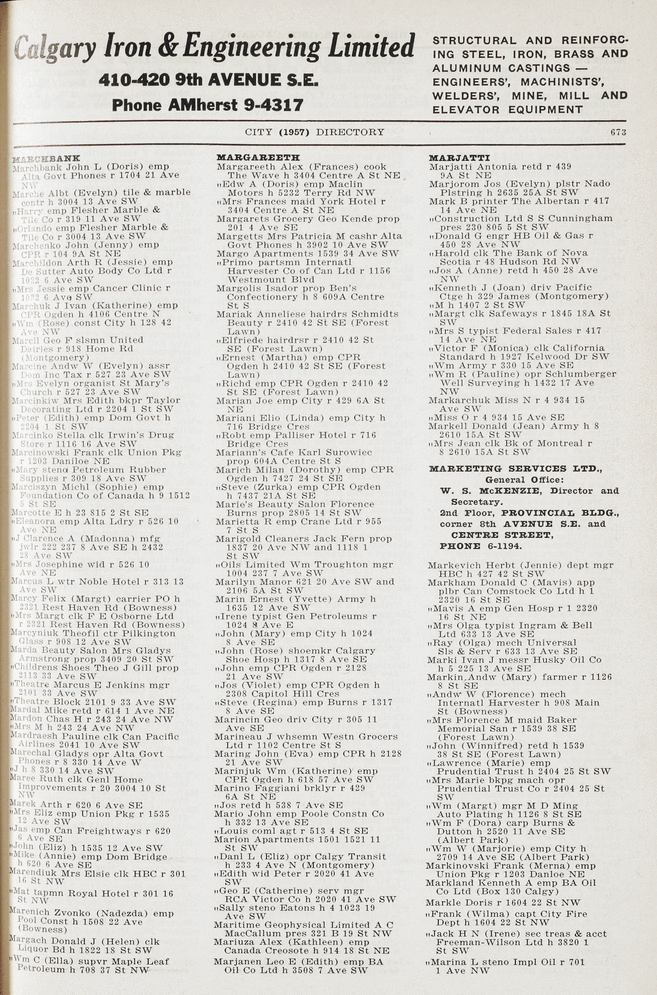 Calgary Iron & Engineering Limited
410-420 9th AVENUE S.E.
Phone AMherst 9-4317
STRUCTURAL AND REINFORC-
ING STEEL, IRON, BRASS AND
ALUMINUM CASTINGS —
ENGINEERS', MACHINISTS',
WELDERS', MINE, MILL AND
ELEVATOR EQUIPMENT
CITY (1957) DIRECTORY
673
MARCHBANK
Marchbank John L (Doris) emp
Alta Govt Phones r 1704 21 Ave
NW
Marche Albt (Evelyn) tile & marble
contr h 3004 13 Ave SW
"Harry emp Flesher Marble &
Tile Co r 319 11 Ave SW
"Orlando emp Flesher Marble &
Tile Co r 3004 13 Ave SW
Marchenko John (Jenny) emp
CPR r 104 9A St NE
Marchildon Arth R (Jessie) emp
De Sutter Auto Body Co Ltd r
1032 6 Ave SW
"Mrs Jessie emp Cancer Clinic r
1032 6 Ave SW
Marchuk J Ivan (Katherine) emp
CPR Ogden h 4106 Centre N
"Wm (Rose) const City h 128 42
Ave NW
Marcil Geo F slsmn United
Dairies r 918 Home Rd
(Montgomery)
Marcine Andw W (Evelyn) assr
Dom Inc Tax r 527 23 Ave SW
"Mrs Evelyn organist St Mary's
Church r 527 23 Ave SW
Marcinkiw Mrs Edith bkpr Taylor
Decorating Ltd r 2204 1 St SW
"Peter (Edith) emp Dom Govt h
2204 1 St SW
Marcinko Stella clk Irwin's Drug
Store r 1116 16 Ave SW
Marcinowski Frank clk Union Pkg
r 1203 Daniloe NE
"Mary steno Petroleum Rubber
Supplies r 309 18 Ave SW
Marciszyn Michl (Sophie) emp
Foundation Co of Canada h 9 1512
5 St SE
Marcotte E h 23 815 2 St SE
"Eleanora emp Alta Ldry r 526 10
Ave NE
"J Clarence A (Madonna) mfg
jwlr 222 237 8 Ave SE h 2432
28 Ave SW
"Mrs Josephine wid r 526 10
Ave NE
Marcus L wtr Noble Hotel r 313 13
Ave SW
Marcy Felix (Margt) carrier PO h
2321 Rest Haven Rd (Bowness)
"Mrs Margt clk F E Osborne Ltd
r 2321 Rest Haven Rd (Bowness)
Marcyniuk Theofil ctr Pilkington
Glass r 908 12 Ave SW
Marda Beauty Salon Mrs Gladys
Armstrong prop 3409 20 St SW
"Childrens Shoes Theo J Gill prop
2113 33 Ave SW
"Theatre Marcus E Jenkins mgr
2101 33 Ave SW
"Theatre Block 2101 9 33 Ave SW
Mardal Mike retd r 614 1 Ave NE
Mardon Chas H r 243 24 Ave NW
"Mrs M h 243 24 Ave NW
Mardraesh Pauline clk Can Pacific
Airlines 2041 10 Ave SW
Marechal Gladys opr Alta Govt
Phones r 8 330 14 Ave W
"J h 8 330 14 Ave SW
Maree Ruth clk Genl Home
Improvements r 20 3004 10 St
NW
Marek Arth r 620 6 Ave SE
"Mrs Eliz emp Union Pkg r 1535
12 Ave SW
"Jas emp Can Freightways r 620
6 Ave SE
"John (Eliz) h 1535 12 Ave SW
"Mike (Annie) emp Dom Bridge
h 620 6 Ave SE
Marendiuk Mrs Elsie clk HBC r 301
16 St NW
"Mat tapmn Royal Hotel r 301 16
St NW
Marenich Zvonko (Nadezda) emp
Pool Const h 1508 22 Ave
(Bowness)
Margach Donald J (Helen) clk
Liquor Bd h 1822 18 St SW
"Wm C (Ella) supvr Maple Leaf
Petroleum h 708 37 St NW
MARGAREETH
Margareeth Alex (Frances) cook
The Wave h 3404 Centre A St NE
"Edw A (Doris) emp Maclin
Motors h 5232 Terry Rd NW
"Mrs Frances maid York Hotel r
3404 Centre A St NE
Margarets Grocery Geo Kende prop
201 4 Ave SE
Margetts Mrs Patricia M cashr Alta
Govt Phones h 3902 10 Ave SW
Margo Apartments 1539 34 Ave SW
"Primo partsmn Internatl
Harvester Co of Can Ltd r 1156
Westmount Blvd
Margolis Isador prop Ben's
Confectionery h 8 609A Centre
St S
Mariak Anneliese hairdrs Schmidts
Beauty r 2410 42 St SE (Forest
Lawn)
"Elfriede hairdrsr r 2410 42 St
SE (Forest Lawn)
"Ernest (Martha) emp CPR
Ogden h 2410 42 St SE (Forest
Lawn)
"Richd emp CPR Ogden r 2410 42
St SE (Forest Lawn)
Marian Joe emp City r 429 6A St
NE
Mariani Elio (Linda) emp City h
716 Bridge Cres
"Robt emp Palliser Hotel r 716
Bridge Cres
Mariann's Cafe Karl Surowiec
prop 604A Centre St S
Marich Milan (Dorothy) emp CPR
Ogden h 7427 24 St SE
"Steve (Zurka) emp CPR Ogden
h 7437 21A St SE
Marie's Beauty Salon Florence
Burns prop 2805 14 St SW
Marietta R emp Crane Ltd r 955
7 St S
Marigold Cleaners Jack Fern prop
1837 20 Ave NW and 1118 1
St SW
"Oils Limited Wm Troughton mgr
1004 237 7 Ave SW
Marilyn Manor 621 20 Ave SW and
2106 5A St SW
Marin Ernest (Yvette) Army h
1635 12 Ave SW
"Irene typist Gen Petroleums r
1024 8 Ave E
"John (Mary) emp City h 1024
8 Ave SE
"John (Rose) shoemkr Calgary
Shoe Hosp h 1317 8 Ave SE
"John emp CPR Ogden r 2128
21 Ave SW
"Jos (Violet) emp CPR Ogden h
2308 Capitol Hill Cres
"Steve (Regina) emp Burns r 1317
8 Ave SE
Marincin Geo driv City r 305 11
Ave SE
Marineau J whsemn Westn Grocers
Ltd r 1102 Centre St S
Maring John (Eva) emp CPR h 2128
21 Ave SW
Marinjuk Wm (Katherine) emp
CPR Ogden h 618 57 Ave SW
Marino Faggiani brklyr r 429
6A St NE
"Jos retd h 538 7 Ave SE
Mario John emp Poole Constn Co
h 332 13 Ave SE
"Louis coml agt r 513 4 St SE
Marion Apartments 1501 1521 11
St SW
"Danl L (Eliz) opr Calgy Transit
h 233 4 Ave N (Montgomery)
"Edith wid Peter r 2020 41 Ave
SW
"Geo E (Catherine) serv mgr
RCA Victor Co h 2020 41 Ave SW
"Sally steno Eatons h 4 1023 19
Ave SW
Maritime Geophysical Limited A C
MacCallum pres 321 B 19 St NW
Mariuza Alex (Kathleen) emp
Canada Creosote h 914 18 St NE
Marjanen Leo E (Edith) emp BA
Oil Co Ltd h 3508 7 Ave SW
MARJATTI
Marjatti Antonia retd r 439
9A St NE
Marjorom Jos (Evelyn) plstr Nado
Plstring h 2635 25A St SW
Mark B printer The Albertan r 417
14 Ave NE
"Construction Ltd S S Cunningham
pres 230 805 5 St SW
"Donald G engr HB Oil & Gas r
450 28 Ave NW
"Harold clk The Bank of Nova
Scotia r 48 Hudson Rd NW
"Jos A (Anne) retd h 450 28 Ave
NW
"Kenneth J (Joan) driv Pacific
Ctge h 329 James (Montgomery)
"M h 1407 2 St SW
"Margt clk Safeways r 1845 18A St
SW
"Mrs S typist Federal Sales r 417
14 Ave NE
"Victor F (Monica) clk California
Standard h 1927 Kelwood Dr SW
"Wm Army r 330 15 Ave SE
"Wm R (Pauline) opr Schlumberger
Well Surveying h 1432 17 Ave
NW
Markarchuk Miss N r 4 934 15
Ave SW
"Miss O r 4 934 15 Ave SE
Markell Donald (Jean) Army h 8
2610 15A St SW
"Mrs Jean clk Bk of Montreal r
8 2610 15A St SW
MARKETING SERVICES LTD.,
General Office:
W. S. McKENZIE, Director and
Secretary.
2nd Floor, PROVINCIAL BLDG.,
corner 8th AVENUE S.E. and
CENTRE STREET,
PHONE 6-1194.
Markevich Herbt (Jennie) dept mgr
HBC h 427 42 St SW
Markham Donald C (Mavis) app
plbr Can Comstock Co Ltd h 1
2320 16 St SW
"Mavis A emp Gen Hosp r 1 2320
16 St NE
"Mrs Olga typist Ingram & Bell
Ltd 633 13 Ave SE
"Ray (Olga) mech Universal
Sls & Serv r 633 13 Ave SE
Marki Ivan J messr Husky Oil Co
h 5 225 13 Ave SE
Markin Andw (Mary) farmer r 1126
8 St SE
"Andw W (Florence) mech
Internatl Harvester h 908 Main
St (Bowness)
"Mrs Florence M maid Baker
Memorial San r 1539 38 SE
(Forest Lawn)
"John (Winnifred) retd h 1539
38 St SE (Forest Lawn)
"Lawrence (Marie) emp
Prudential Trust h 2404 25 St SW
"Mrs Marie bkpg mach opr
Prudential Trust Co r 2404 25 St
SW
"Wm (Margt) mgr M D Ming
Auto Plating h 1126 8 St SE
"Wm F (Dora) carp Burns &
Dutton h 2520 11 Ave SE
(Albert Park)
"Wm W (Marjorie) emp City h
2709 14 Ave SE (Albert Park)
Markinovski Frank (Merna) emp
Union Pkg r 1203 Danloe NE
Markland Kenneth A emp BA Oil
Co Ltd (Box 130 Calgy)
Markle Doris r 1604 22 St NW
"Frank (Wilma) capt City Fire
Dept h 1604 22 St NW
"Jack H N (Irene) sec treas & acct
Freeman-Wilson Ltd h 3820 1
St SW
"Marina L steno Impl Oil r 701
1 Ave NW